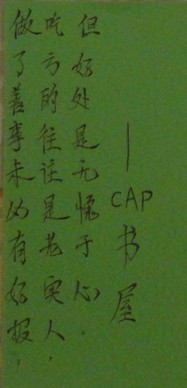 做了善事未必有好报,
吃亏的往往是老实人,
但好处是无愧于心.
—CAP书屋